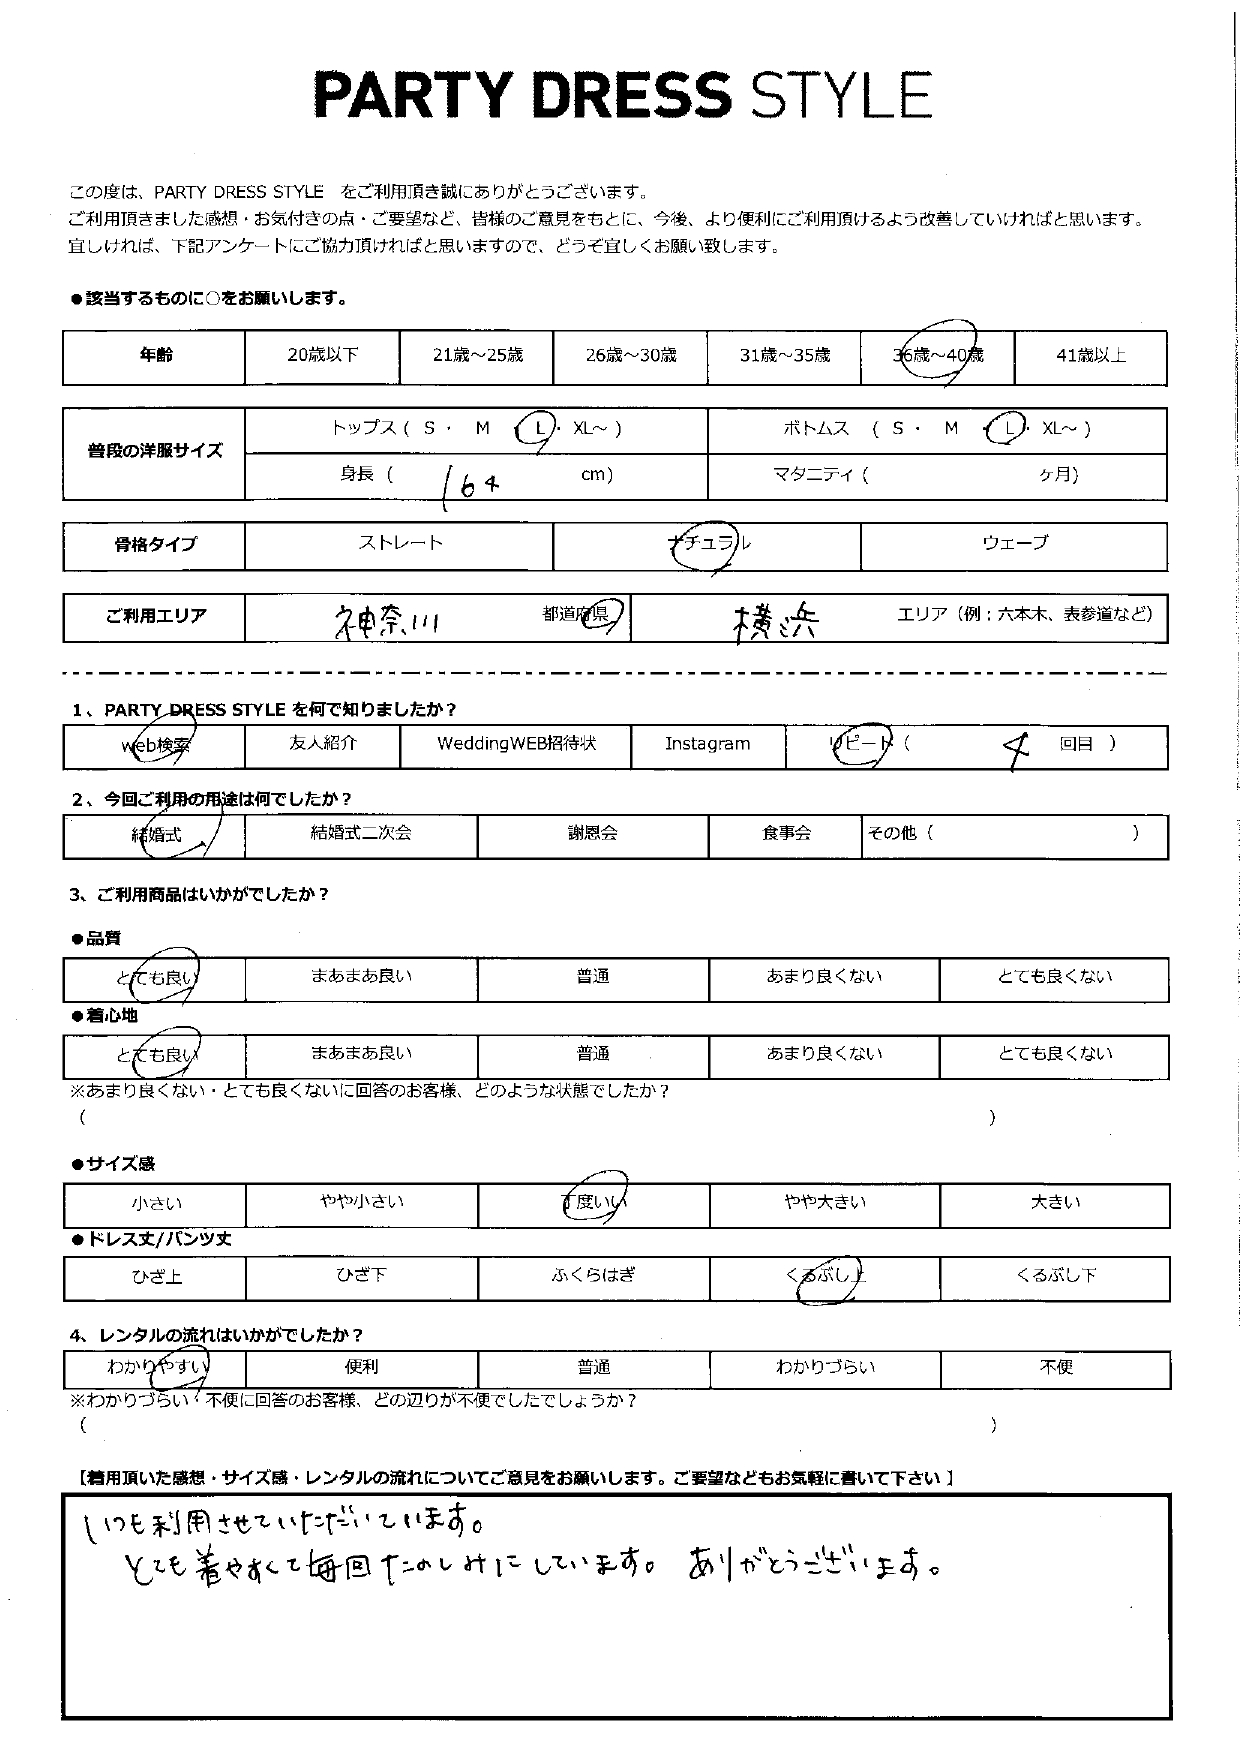 PARTY DRESS STYLE
この度は、PARTY DRESS STYLE をご利用頂き誠にありがとうございます。
ご利用頂きました感想・お気付きの点・ご要望など、皆様のご意見をもとに、今後、より便利にご利用頂けるよう改善していければと思います。
宜しければ、下記アンケートにご協力頂ければと思いますので、どうぞ宜しくお願い致します。
●該当するものに○をお願いします。
年齢 20歳以下 21歳～25歳 26歳～30歳 31歳～35歳 36歳～40歳 41歳以上
普段の洋服サイズ トップス ( S ・ M ・ L ・ XL～ ) ボトムス ( S ・ M ・ L ・ XL～ )
身長 ( 164 cm) マタニティ ( ヶ月)
骨格タイプ ストレート ナチュラル ウェーブ
ご利用エリア 神奈川 都道府県 横浜 エリア（例；六本木、表参道など）
1、PARTY DRESS STYLE を何で知りましたか？
web検索 友人紹介 WeddingWEB招待状 Instagram リピート ( 4 回目 )
2、今回ご利用の用途は何でしたか？
結婚式 結婚式二次会 謝恩会 食事会 その他 ( )
3、ご利用商品はいかがでしたか？
●品質
とても良い まあまあ良い 普通 あまり良くない とても良くない
●着心地
とても良い まあまあ良い 普通 あまり良くない とても良くない
※あまり良くない・とても良くないに回答のお客様、どのような状態でしたか？
( )
●サイズ感
小さい やや小さい 丁度いい やや大きい 大きい
●ドレス丈/パンツ丈
ひざ上 ひざ下 ふくらはぎ くるぶし上 くるぶし下
4、レンタルの流れはいかがでしたか？
わかりやすい 便利 普通 わかりづらい 不便
※わかりづらい・不便に回答のお客様、どの辺りが不便でしたでしょうか？
( )
【着用頂いた感想・サイズ感・レンタルの流れについてご意見をお願いします。ご要望などもお気軽に書いて下さい】
いつも利用させていただいています。
とても着やすくて毎回たのしみにしています。 ありがとうございます。